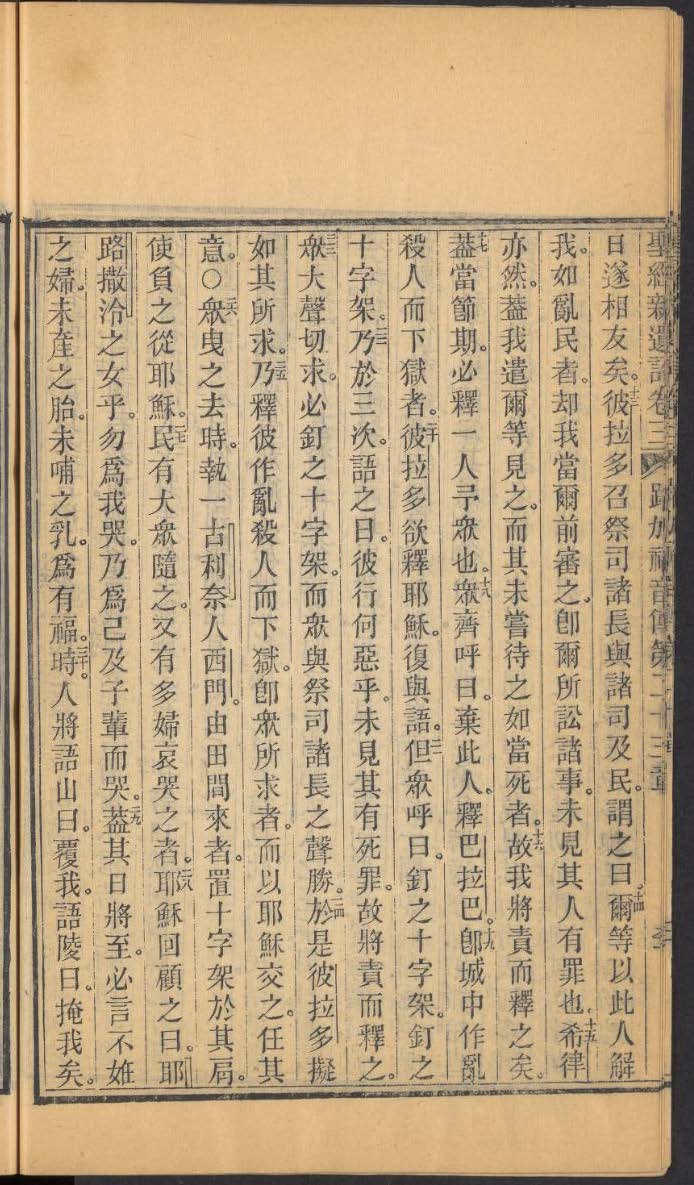 聖經新遺詔卷三 路加福音傳第二十三章
日遂相友矣。十三彼拉多召祭司諸長與諸司及民。謂之曰。十四爾等以此人解
我。如亂民者。却我當爾前審之。卽爾所訟諸事。未見其人有罪也。十五希律
亦然。葢我遣爾等見之。而其未嘗待之如當死者。十六故我將責而釋之矣。
十七葢當節期。必釋一人予衆也。十八衆齊呼曰。棄此人。釋巴拉巴。十九卽城中作亂
殺人而下獄者。二十彼拉多欲釋耶穌。復與語。二一但衆呼曰。釘之十字架。釘之
十字架。二二乃於三次。語之曰。彼行何惡乎。未見其有死罪。故將責而釋之。
二三衆大聲切求。必釘之十字架。而衆與祭司諸長之聲勝。二四於是彼拉多擬
如其所求。二五乃釋彼作亂殺人而下獄。卽衆所求者。而以耶穌交之。任其
意。〇二六衆曳之去時。執一古利奈人西門。由田間來者。置十字架於其肩。
使負之從耶穌。二七民有大衆隨之。又有多婦哀哭之者。二八耶穌回顧之曰。耶
路撒泠之女乎。勿爲我哭。乃爲己及子輩而哭。二九葢其日將至。必言不姙
之婦。未產之胎。未哺之乳。爲有福。三十時。人將語山曰。覆我。語陵曰。掩我矣。